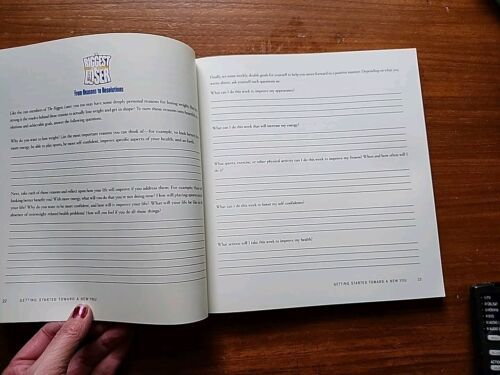 THE
BIGGEST
LOSER
From Reasons to Resolutions
Like the cast members of The Biggest Loser, you too may have some deeply personal reasons for losing weight.
strong is the resolve behind those reasons to actually lose weight and get in shape? To turn those reasons into
lutions and achievable goals, answer the following questions.
Why do you want to lose weight? List the most important reasons you can think of—for example, to look better,
more energy, be able to play sports, be more self-confident, improve specific aspects of your health, and so forth.
Next, take each of those reasons and reflect upon how your life will improve if you address them. For example: How
looking better benefit you? With more energy, what will you do that you're not doing now? How will playing sports
your life? Why do you want to be more confident, and how will it improve your life? What will your life be like in
absence of overweight-related health problems? How will you feel if you do all these things?
22
GETTING STARTED TOWARD A NEW YOU
Finally, set some weekly, doable goals for yourself to help you move forward in a positive manner. Depending on what you
want above, ask yourself such questions as:
What can I do this week to improve my appearance?
What can I do this week that will increase my energy?
What sports, exercise, or other physical activity can I do this week to improve my fitness? When and how often will I
do it?
What can I do this week to boost my self-confidence?
What actions will I take this week to improve my health?
GETTING STARTED TOWARD A NEW YOU
23